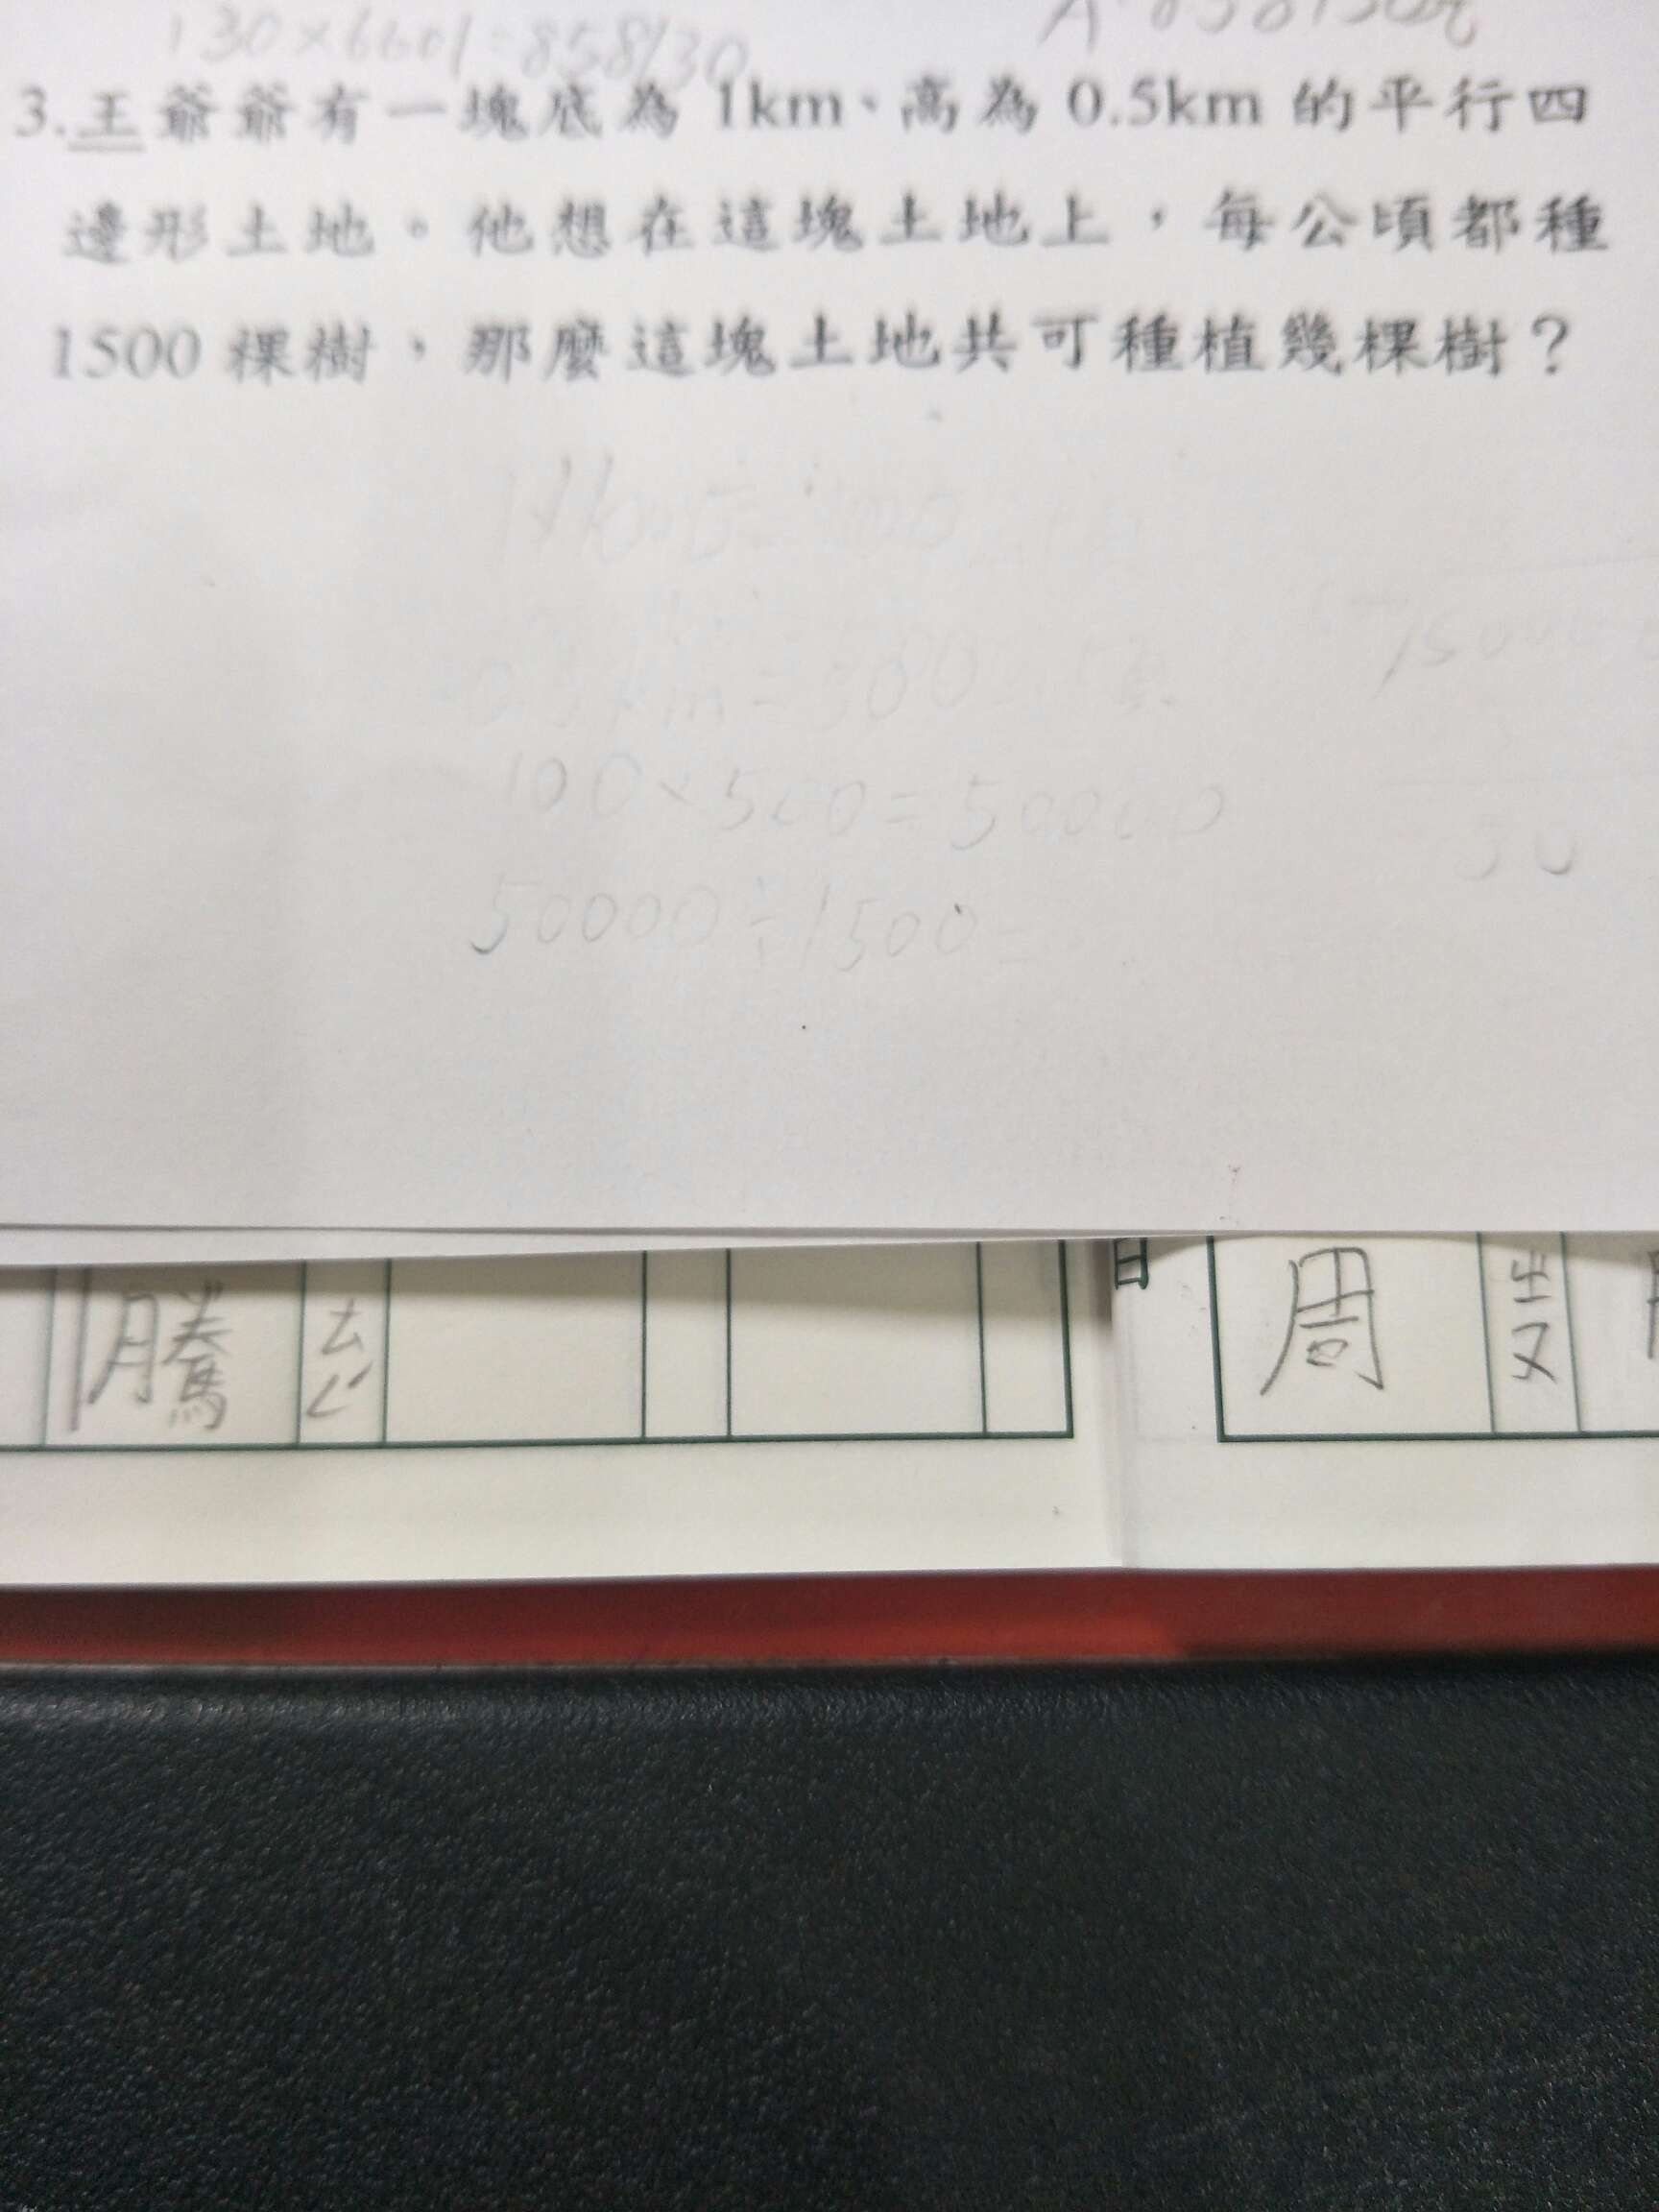 130×6601=858130
3.王爺爺有一塊底為 1km、高為 0.5km 的平行四
邊形土地。他想在這塊土地上，每公頃都種
1500 棵樹，那麼這塊土地共可種植幾棵樹？
100×500=50000
50000÷1500=
騰 ㄊㄥˊ
日
周 ㄓㄡ